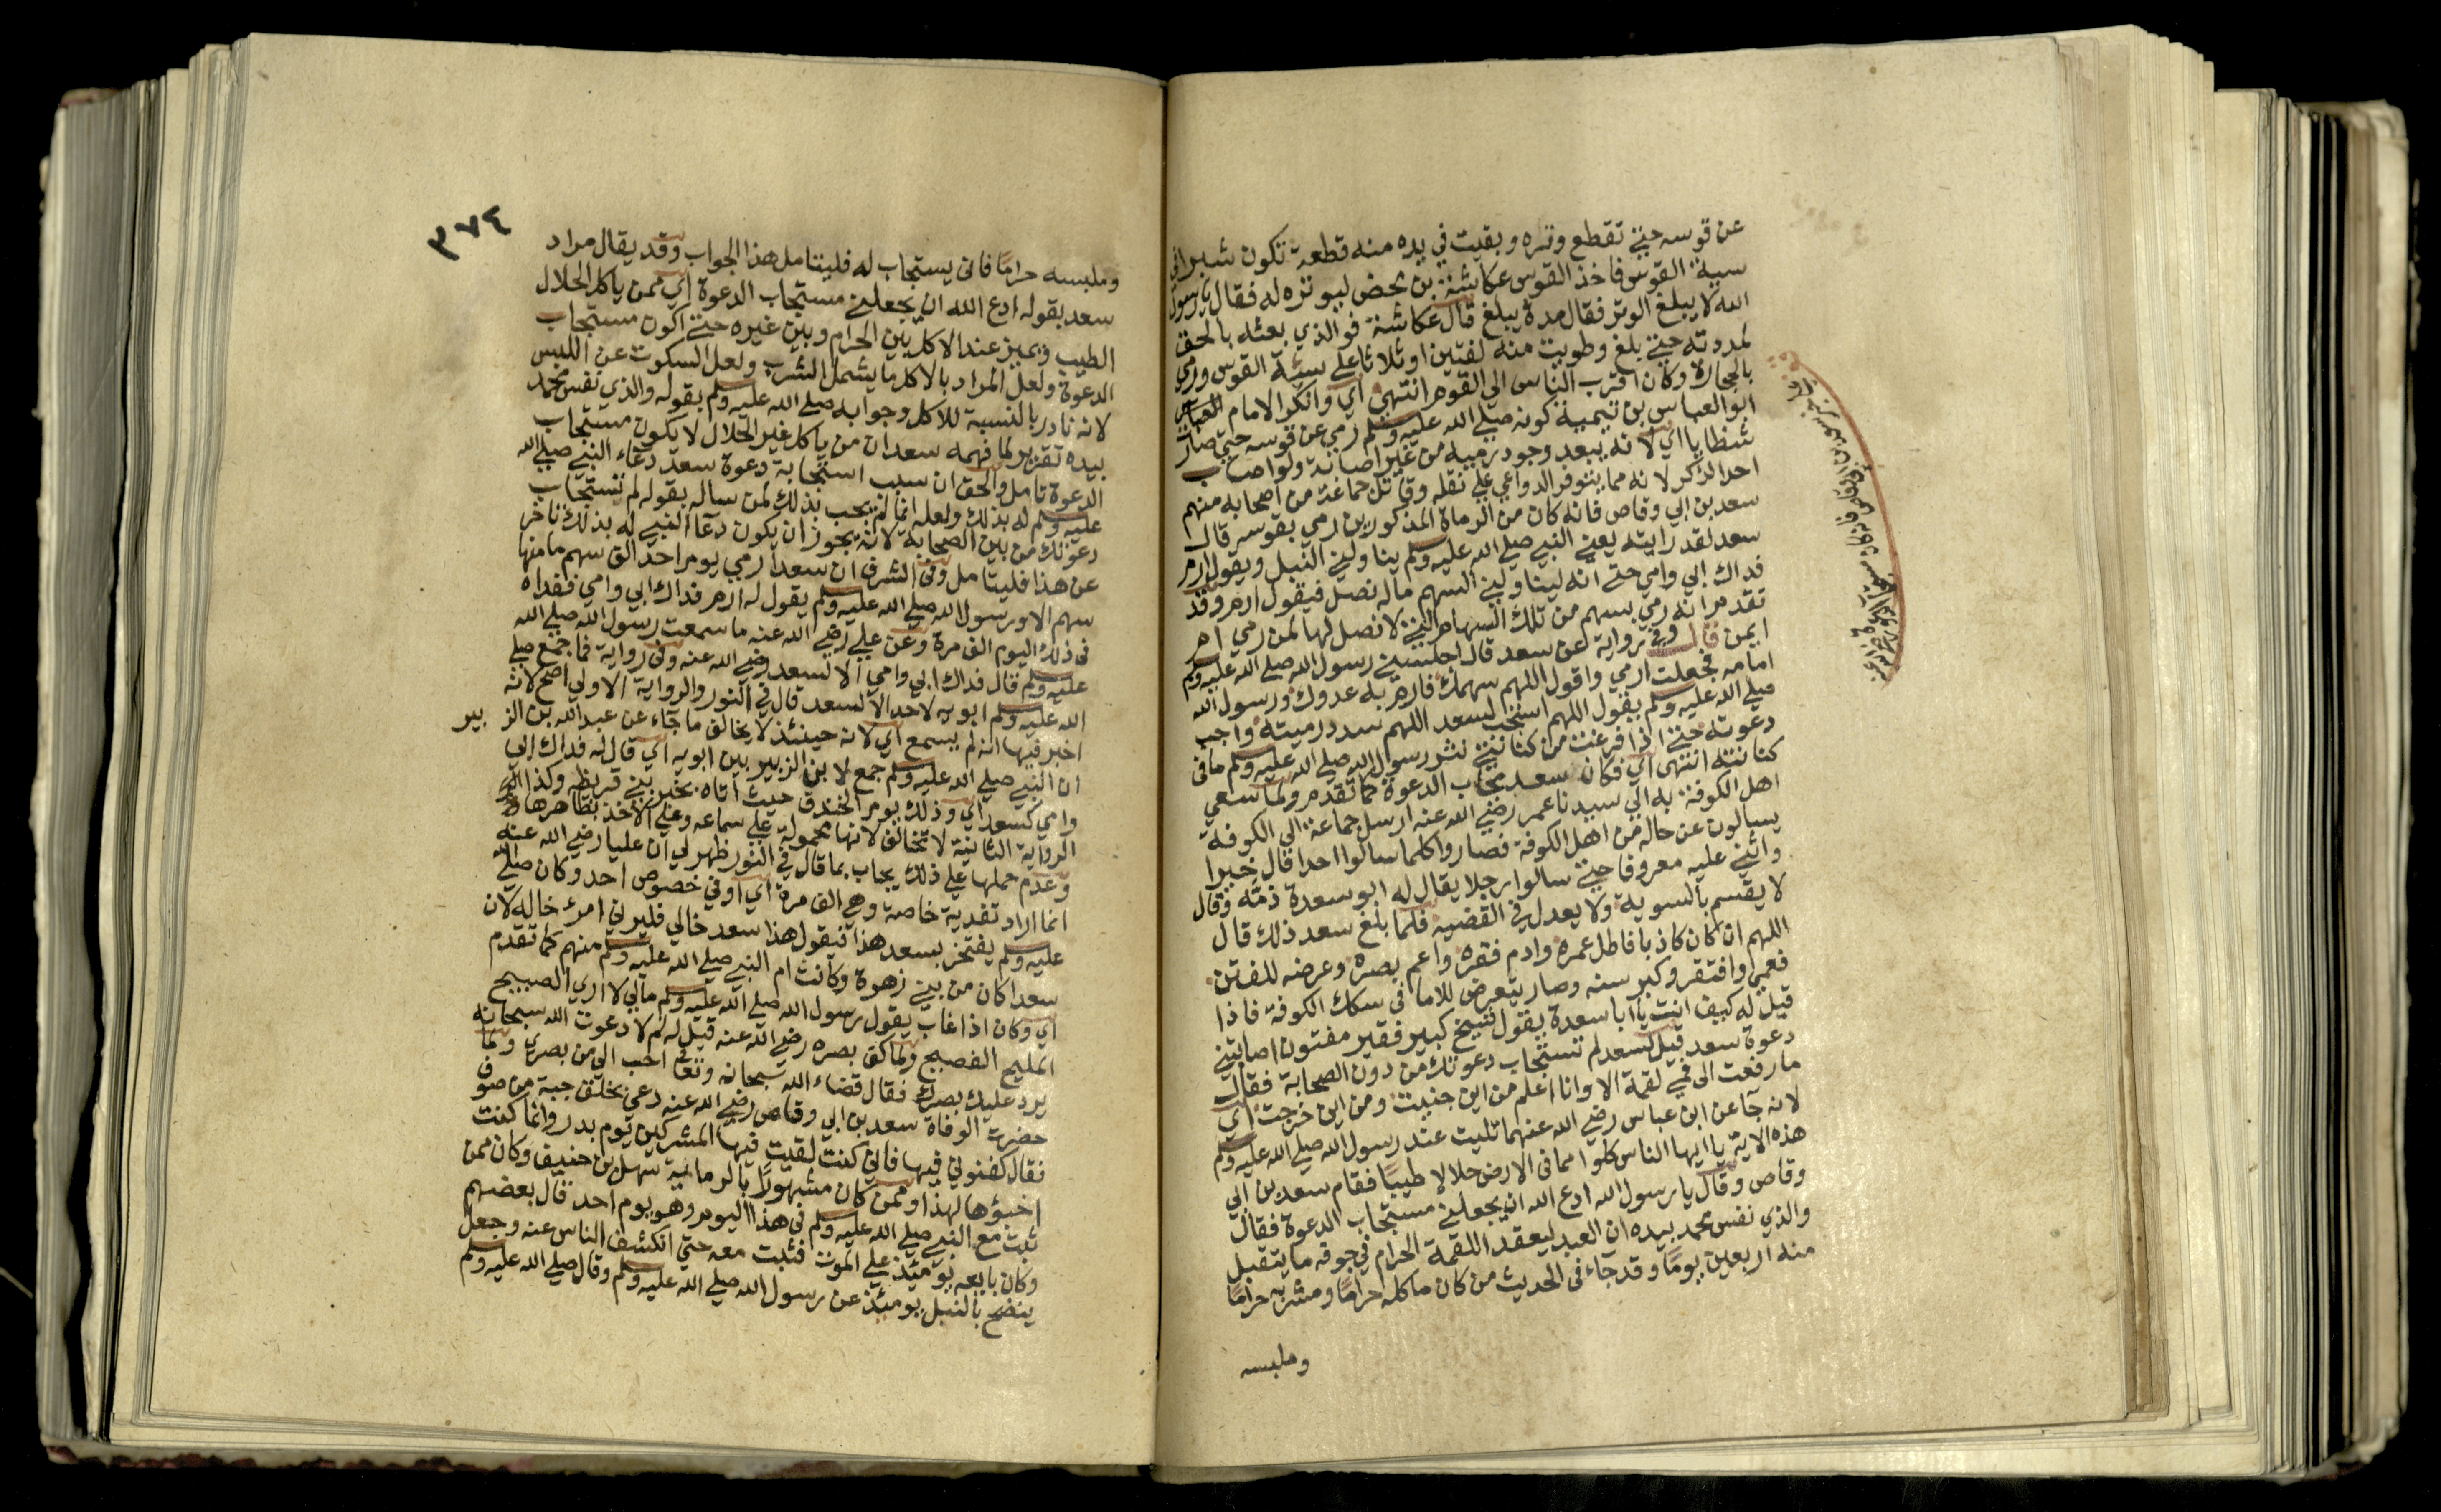 عن قوسه حتى تقطع وتره وبقيت في يده منه قطعة تكون شبرا في
سية القوس فاخذ القوس عكاشة بن محض ليوتره له فقال يا رسول
الله لا يبلغ الوتر فقال مده يبلغ قال عكاشة فوالذي بعثه بالحق
لمددته حتى بلغ وطويت منه لفتين او ثلاثا على سية القوس ورمي
بالحجارة وكان اقرب الناس الى القوم انتهى اي وانكر الامام
ابو العباس بن تيمية كونه صلى الله عليه وسلم رمي عن قوسه حتى صارت
شظايا اي لانه يبعد وجود رميه من غير اصابة ولو اصاب
احدا لذكر لانه مما يتوفر الدواعي على نقله وقاتل جماعة من اصحابه منهم
سعد بن ابي وقاص فانه كان من الرماة المذكورين رمي بقوسه قال
سعد لقد رايته يعني النبي صلى الله عليه وسلم يناولني النبل ويقول ارم
فداك ابي وامي حتى انه ليناولني السهم ماله نصل فيقول ارم وقد
تقدم انه رمي بسهم من تلك السهام التي لا نصل لها لمن رمي ام
ايمن قال وفي رواية عن سعد قال اجلسني رسول الله صلى الله عليه وسلم
امامه فجعلت ارمي واقول اللهم سهمك فارم به عدوك ورسول الله
صلى الله عليه وسلم يقول اللهم استجب لسعد اللهم سدد رميته واجب
دعوته حتى اذا فرغت من كنانتي نثر رسول الله صلى الله عليه وسلم ما في
كنانته انتهى اي فكان سعد مجاب الدعوة كما تقدم ولما سعي
اهل الكوفة به الي سيدنا عمر رضي الله عنه ارسل جماعة الي الكوفة
يسالون عن حاله من اهل الكوفة فصاروا كلما سالوا احدا قال خيرا
واثني عليه معروفا حتى سالوا رجلا يقال له ابو سعدة ذمه وقال
لا يقسم بالسوية ولا يعدل في القضية فلما بلغ سعد ذلك قال
اللهم ان كان كاذبا فاطل عمره وادم فقره واعم بصره وعرضه للفتن
فعمي وافتقر وكبر سنه وصار يتعرض للاما في سكك الكوفة فاذا
قيل له كيف انت يا ابا سعدة يقول شيخ كبير فقير مفتون اصابتني
دعوة سعد قيل لسعد لم تستجاب دعوتك من دون الصحابة فقال
ما رفعت الى فمي لقمة الا وانا اعلم من اين جئيت ومن اين خرجت اي
لانه جآ عن ابن عباس رضي الله عنهما تليت عند رسول الله صلى الله عليه وسلم
هذه الاية يا ايها الناس كلوا مما في الارض حلالا طيبا فقام سعد بن ابي
وقاص وقال يا رسول الله ادع الله ان يجعلني مستجاب الدعوة فقال
والذي نفس محمد بيده ان العبد ليعقد اللقمة الحرام في جوفه ما يتقبل
منه اربعين يومًا وقد جاء في الحديث من كان ماكله حرامًا ومشربه حرامًا
وملبسه
٣٧٤
وملبسه حرامًا فاني يستجاب له فليتامل هذا الجواب وقد يقال مراد
سعد بقوله ادع الله ان يجعلني مستجاب الدعوة اي ممن ياكل الحلال
الطيب ويميز عند الاكل بين الحرام وبين غيره حتى اكون مستجاب
الدعوة ولعل المراد بالاكل ما يشمل الشرب ولعل السكوت عن اللبس
لانه نادر بالنسبة للاكل وجوابه صلى الله عليه وسلم بقوله والذي نفس محمد
بيده تقرير لما فهمه سعد ان من ياكل غير الحلال لا يكون مستجاب
الدعوة تامل والحق ان سبب استجابة دعوة سعد دعاء النبي صلى الله
عليه وسلم له بذلك ولعله انما لم يجب بذلك لمن ساله بقوله لم تستجاب
دعوتك من بين الصحابة لانه يجوز ان يكون دعآ النبي له بذلك تاخر
عن هذا فليتامل وفي الشرف ان سعدا رمي يوم احد الف سهم ما منها
سهم الا ورسول الله صلى الله عليه وسلم يقول له ارم فداك ابي وامي ففداه
في ذلك اليوم الف مرة وعن علي رضي الله عنه ما سمعت رسول الله صلى الله
عليه وسلم قال فداك ابي وامي الا لسعد رضي الله عنه وفي رواية فما جمع صلى
الله عليه وسلم ابويه لاحد الا لسعد قال في النور والرواية الاولي اصح لانه
اخبر فيها انه لم يسمع اي لانه حينئذ لا يخالف ما جاء عن عبد الله بن الز بير
ان النبي صلى الله عليه وسلم جمع لابن الزبير بين ابويه اي قال له فداك ابي
وامي كسعد اي وذلك يوم الخندق حيث اتاه بخبر بني قريظه وكذا
الرواية الثانية لا تخالف لانها محمولة على سماعه وعلى الاخذ بظاهرها
وعدم حملها على ذلك يجاب بما قال في النور ظهر لي ان عليا رضي الله عنه
انما اراد تفدية خاصة وهي الف مرة اي او في خصوص احد وكان صلى الله
عليه وسلم يفتخر بسعد هذا فيقول هذا سعد خالي فليرني امرء خاله لان
سعدا كان من بني زهرة وكانت ام النبي صلى الله عليه وسلم منهم كما تقدم
اي وكان اذا غاب يقول رسول الله صلى الله عليه وسلم مالي لا اري الصبيح
المليح الفصيح ولما كف بصره رضي الله عنه قيل له لم لا دعوت الله سبحانه
يرد عليك بصرك فقال قضاء الله سبحانه وتعالى احب الي من بصري ولما
حضرت الوفاة سعد بن ابي وقاص رضي الله عنه دعي بخلق جبة من صوف
فقال كفنوني فيها فاني كنت لقيت فيها المشركين يوم بدر وانما كنت
اخبؤها لهذا وممن كان مشهورًا بالرماية سهل بن حنيف وكان ممن
ثبت مع النبي صلى الله عليه وسلم في هذا اليوم وهو يوم احد قال بعضهم
وكان بايعه يومئذ على الموت فثبت معه حتى انكشف الناس عنه وجعل
ينضح بالنبل يومئذ عن رسول الله صلى الله عليه وسلم وقال صلى الله عليه وسلم